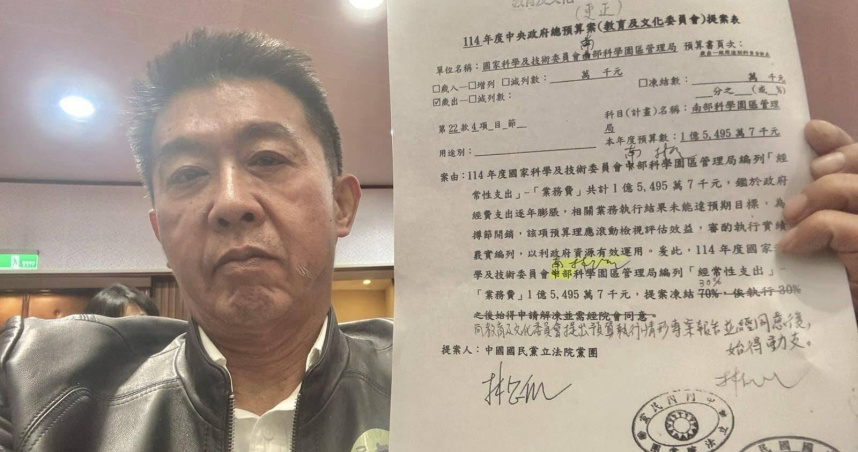 (更正)
114年度中央政府總預算案(教育及文化委員會)提案表
南
單位名稱:國家科學及技術委員會中部科學園區管理局 預算書頁次:
□歲入—□增列 □減列數: 萬 千元 □凍結數: 萬 千元
☑歲出—□減列數: 分之 (或 %)
第22款4項_目_節__ 科目(計畫)名稱:南部科學園區管理
局
用途別: 本年度預算數:1億5,495萬7千元
南
案由:114年度國家科學及技術委員會中部科學園區管理局編列「經
常性支出」-「業務費」共計1億5,495萬7千元,鑑於政府
經費支出逐年膨脹,相關業務執行結果未能達預期目標,為
撙節開銷,該項預算理應滾動檢視評估效益,審酌執行實績
覈實編列,以利政府資源有效運用。爰此,114年度國家科
南
學及技術委員會中部科學園區管理局編列「經常性支出」-
30%
「業務費」1億5,495萬7千元,提案凍結70%,俟執行30%
之後始得申請解凍並需經院會同意。
向教育及文化委員會提出預算執行情形專案報告並經同意後,
始得動支。
提案人:中國國民黨立法院黨團